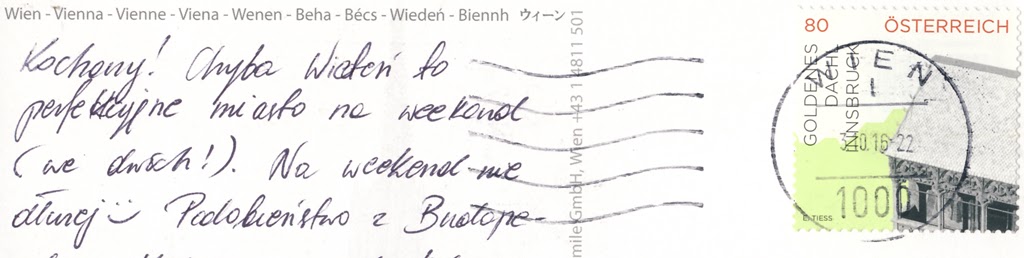 Wien - Vienna - Vienne - Viena - Wenen - Beha - Bécs - Wiedeń - Biennh ウィーン
Kochany! Chyba Wiedeń to
perfekcyjne miasto na weekend
(we dwóch!). Na weekend nie
dłużej Podobieństwo z Budape-
mile GmbH, Wien +43 1 4811 501
80 ÖSTERREICH
GOLDENES
DACHL
INNSBRUCK
WIEN
3.10.16-22
1000
E. TIESS